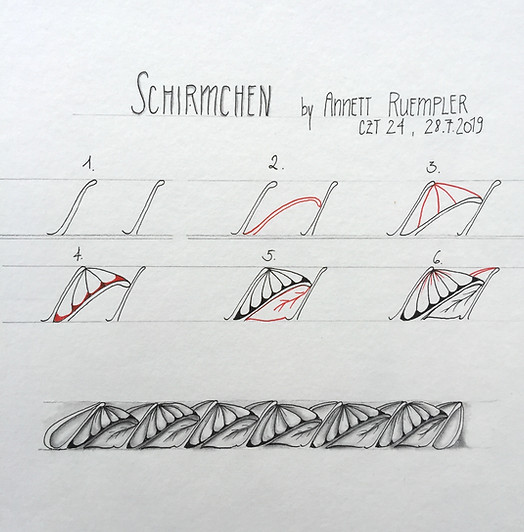 SCHIRMCHEN by ANNETT RUEMPLER
CZT 24, 28.7.2019
1. 2. 3.
4. 5. 6.